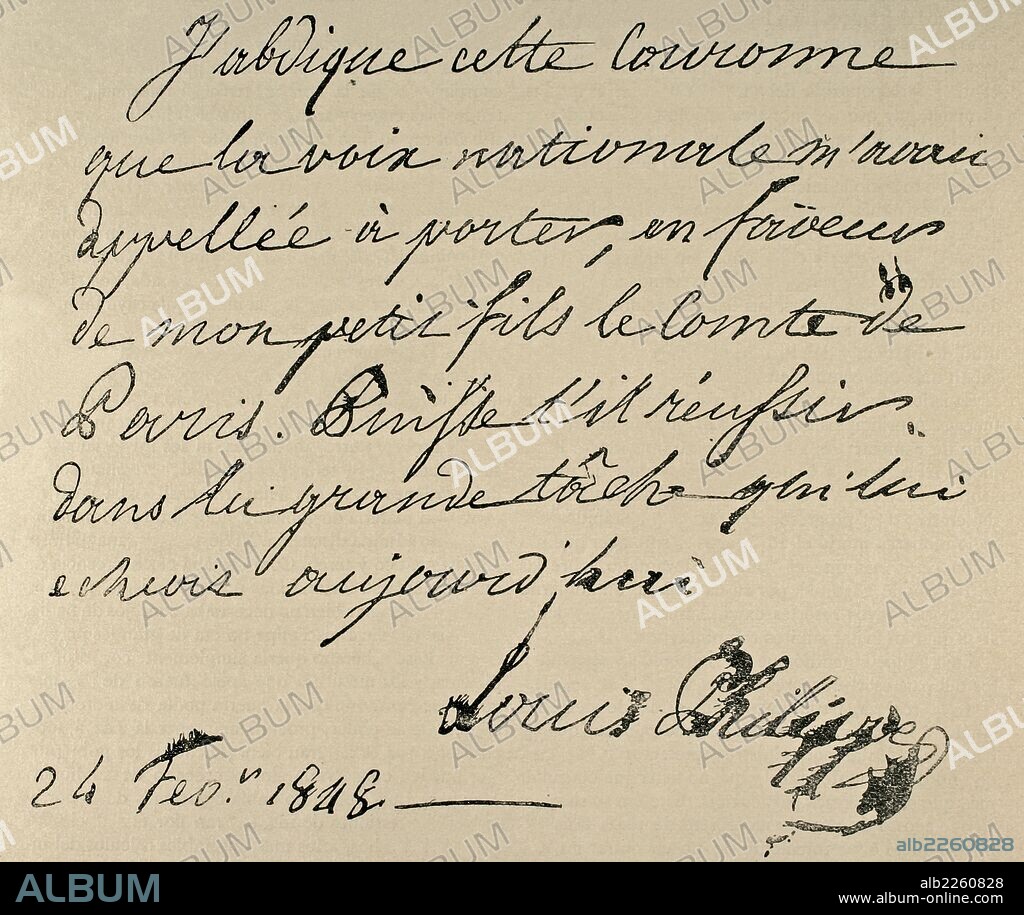 J'abdique cette Couronne
que la voix nationale m'avait
appellée à porter, en faveur
de mon petit fils le Comte de
Paris. Puisse t'il réussir
dans la grande tâche qui lui
echoit aujourd'hui
Louis Philippe
24 Fev.er 1848.
alb2260828
ALBUM
alb2260828
www.album-online.com